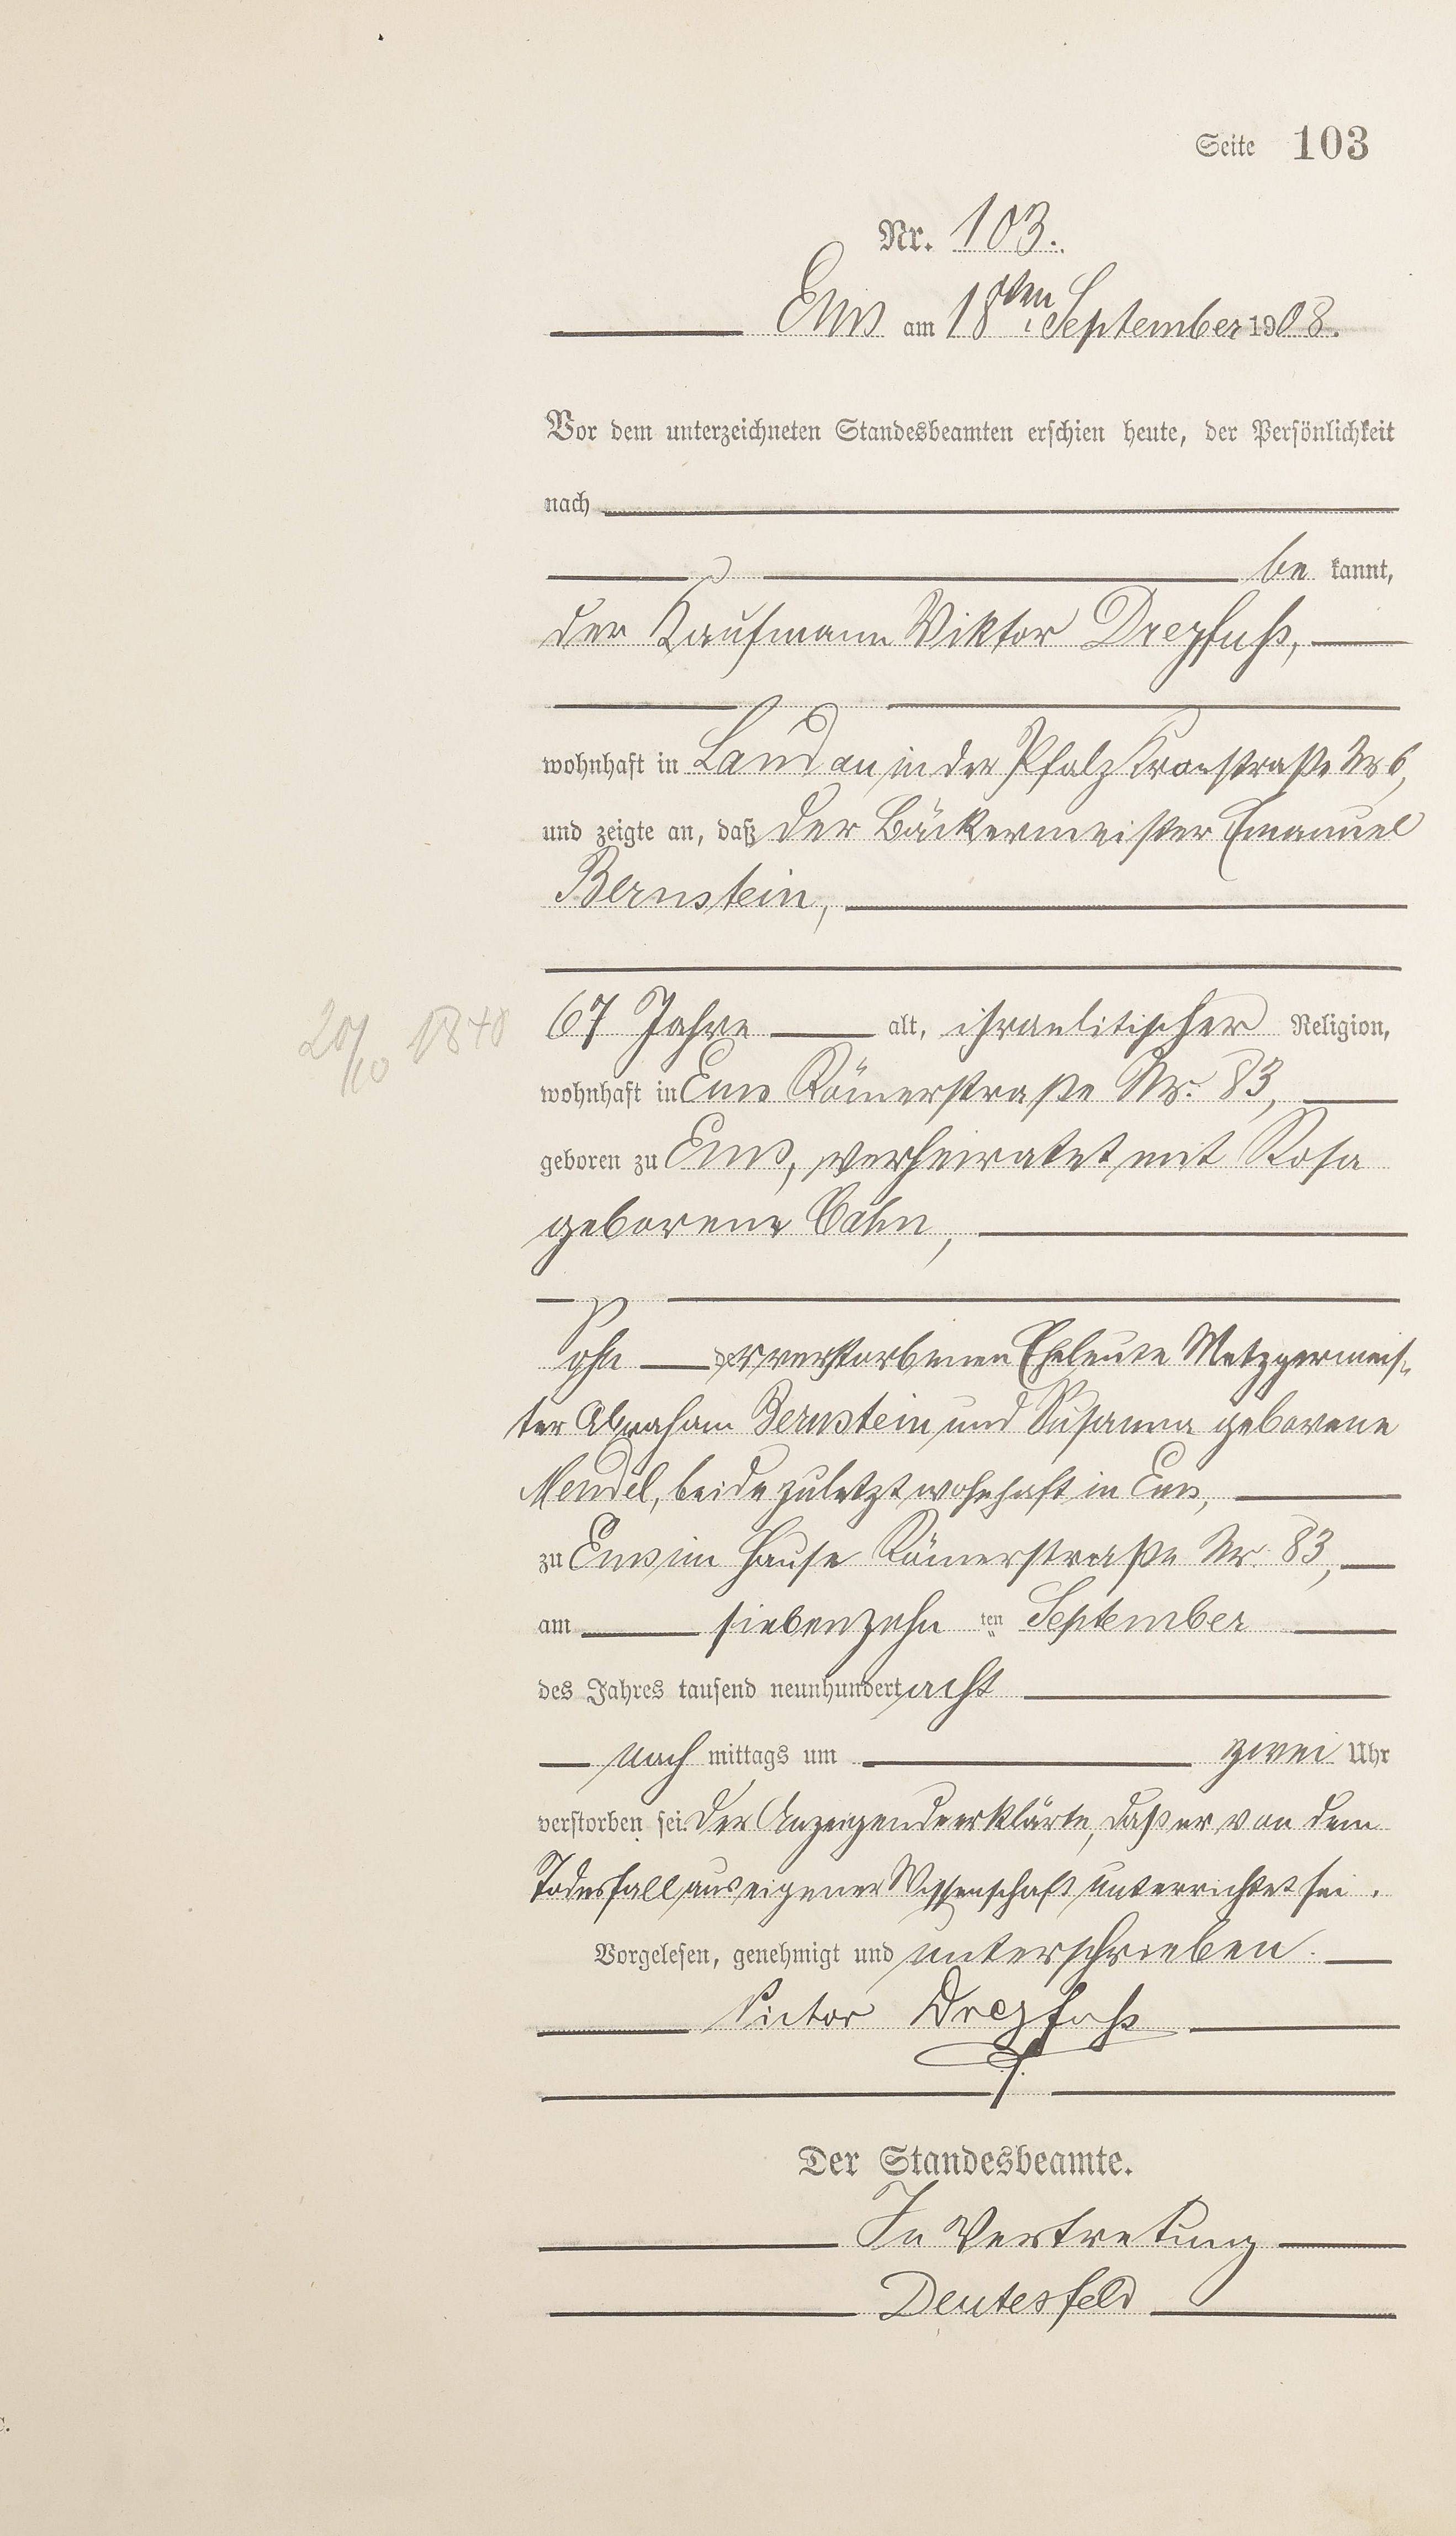 Seite 103
Nr. 103.
Ems am 18ten September 1908.
Vor dem unterzeichneten Standesbeamten erschien heute, der Persönlichkeit
nach
be kannt,
der Kaufmann Viktor Dreyfuß,
wohnhaft in Landau in der Pfalz Kronstraße Nr 6,
und zeigte an, daß der Bäckermeister Emanuel
Bernstein,
20/10 1840
67 Jahre alt, israelitischer Religion,
wohnhaft in Ems Römerstraße Nr. 83,
geboren zu Ems, verheiratet mit Rosa
geborene Cahn,
Sohn der verstorbenen Eheleute Metzgermeis-
ter Abraham Bernstein und Susanna geborene
Mendel, beide zuletzt wohnhaft in Ems,
zu Ems im Hause Römerstraße Nr. 83,
am siebenzehn ten September
des Jahres tausend neunhundert acht
nach mittags um zwei Uhr
verstorben sei. Der Anzeigende erklärte, daß er von dem
Todesfall aus eigener Wissenschaft unterrichtet sei.
Vorgelesen, genehmigt und unterschrieben.
Victor Dreyfuß
Der Standesbeamte.
In Vertretung
Deutesfeld